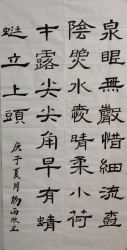 泉眼無聲惜細流樹
陰照水愛晴柔小荷
才露尖尖角早有蜻
蜓立上頭
庚子夏月楊雨